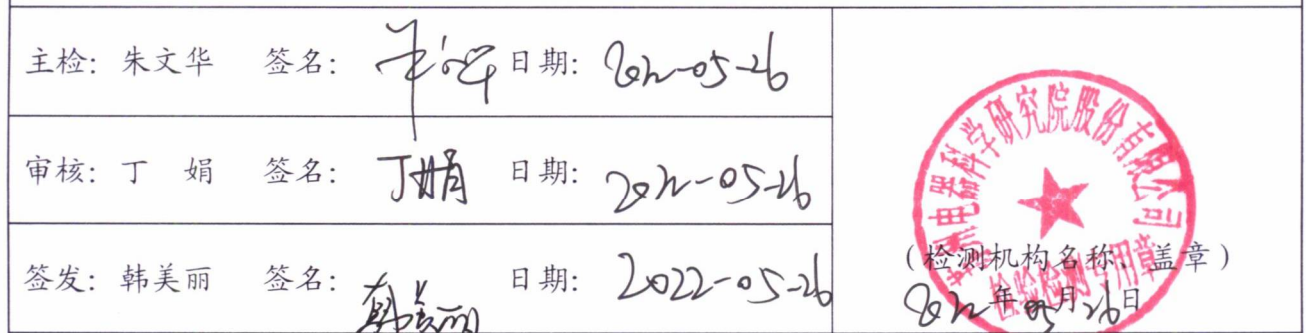 主检: 朱文华 签名: 朱文华 日期: 2022-05-26
审核: 丁 娟 签名: 丁娟 日期: 2022-05-26
签发: 韩美丽 签名: 韩美丽 日期: 2022-05-26
苏州电器科学研究院股份有限公司
检验检测专用章
(检测机构名称、盖章)
2022年05月26日